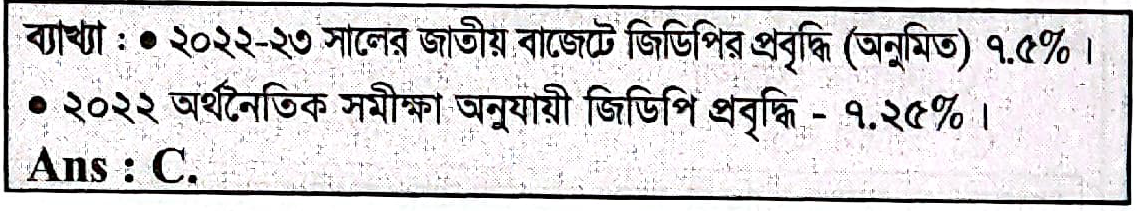 ব্যাখ্যা : ● ২০২২-২৩ সালের জাতীয় বাজেটে জিডিপির প্রবৃদ্ধি (অনুমিত) ৭.৫% ।
● ২০২২ অর্থনৈতিক সমীক্ষা অনুযায়ী জিডিপি প্রবৃদ্ধি - ৭.২৫% ।
Ans : C.